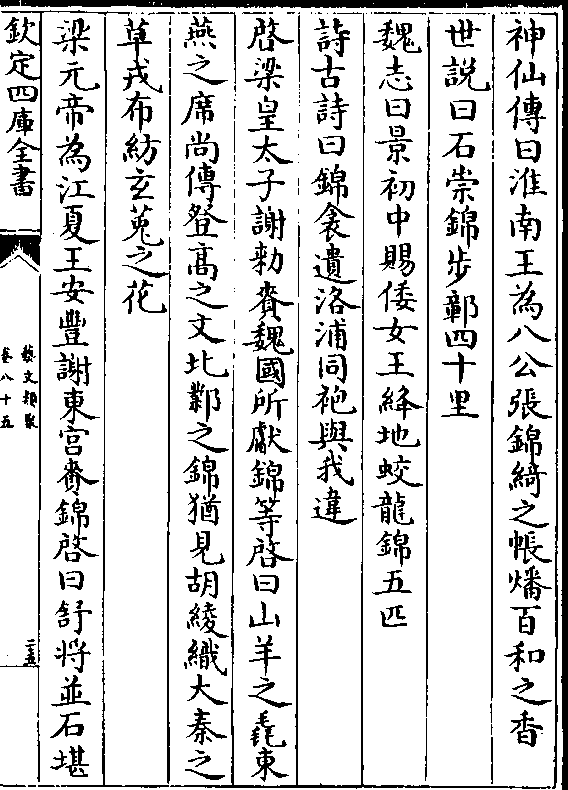 神仙傳曰淮南王為八公張錦綺之帳燔百和之香
世說曰石崇錦步鄣四十里
魏志曰景初中賜倭女王絳地蛟龍錦五匹
詩古詩曰錦衾遺洛浦同袍與我違
啓梁皇太子謝勑賚魏國所獻錦等啓曰山羊之毳東
燕之席尚傳登高之文北鄴之錦猶見胡綾織大秦之
草戎布紡玄菟之花
梁元帝為江夏王安豐謝東宮賚錦啓曰舒將並石堪
欽定四庫全書
藝文類聚
卷八十五
二五